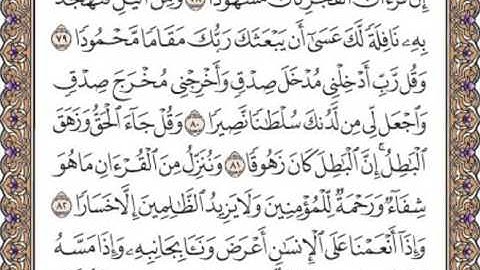 إِنَّ قُرْءَانَ ٱلْفَجْرِ كَانَ مَشْهُودًا ٧٨ وَمِنَ ٱلَّيْلِ فَتَهَجَّدْ
بِهِۦ نَافِلَةً لَّكَ عَسَىٰٓ أَن يَبْعَثَكَ رَبُّكَ مَقَامًا مَّحْمُودًا ٧٩
وَقُل رَّبِّ أَدْخِلْنِى مُدْخَلَ صِدْقٍ وَأَخْرِجْنِى مُخْرَجَ صِدْقٍ
وَٱجْعَل لِّى مِن لَّدُنكَ سُلْطَٰنًا نَّصِيرًا ٨٠ وَقُلْ جَآءَ ٱلْحَقُّ وَزَهَقَ
ٱلْبَٰطِلُ ۚ إِنَّ ٱلْبَٰطِلَ كَانَ زَهُوقًا ٨١ وَنُنَزِّلُ مِنَ ٱلْقُرْءَانِ مَا هُوَ
شِفَآءٌ وَرَحْمَةٌ لِّلْمُؤْمِنِينَ وَلَا يَزِيدُ ٱلظَّٰلِمِينَ إِلَّا خَسَارًا ٨٢
وَإِذَآ أَنْعَمْنَا عَلَى ٱلْإِنسَٰنِ أَعْرَضَ وَنَـَٔا بِجَانِبِهِۦ وَإِذَا مَسَّهُ